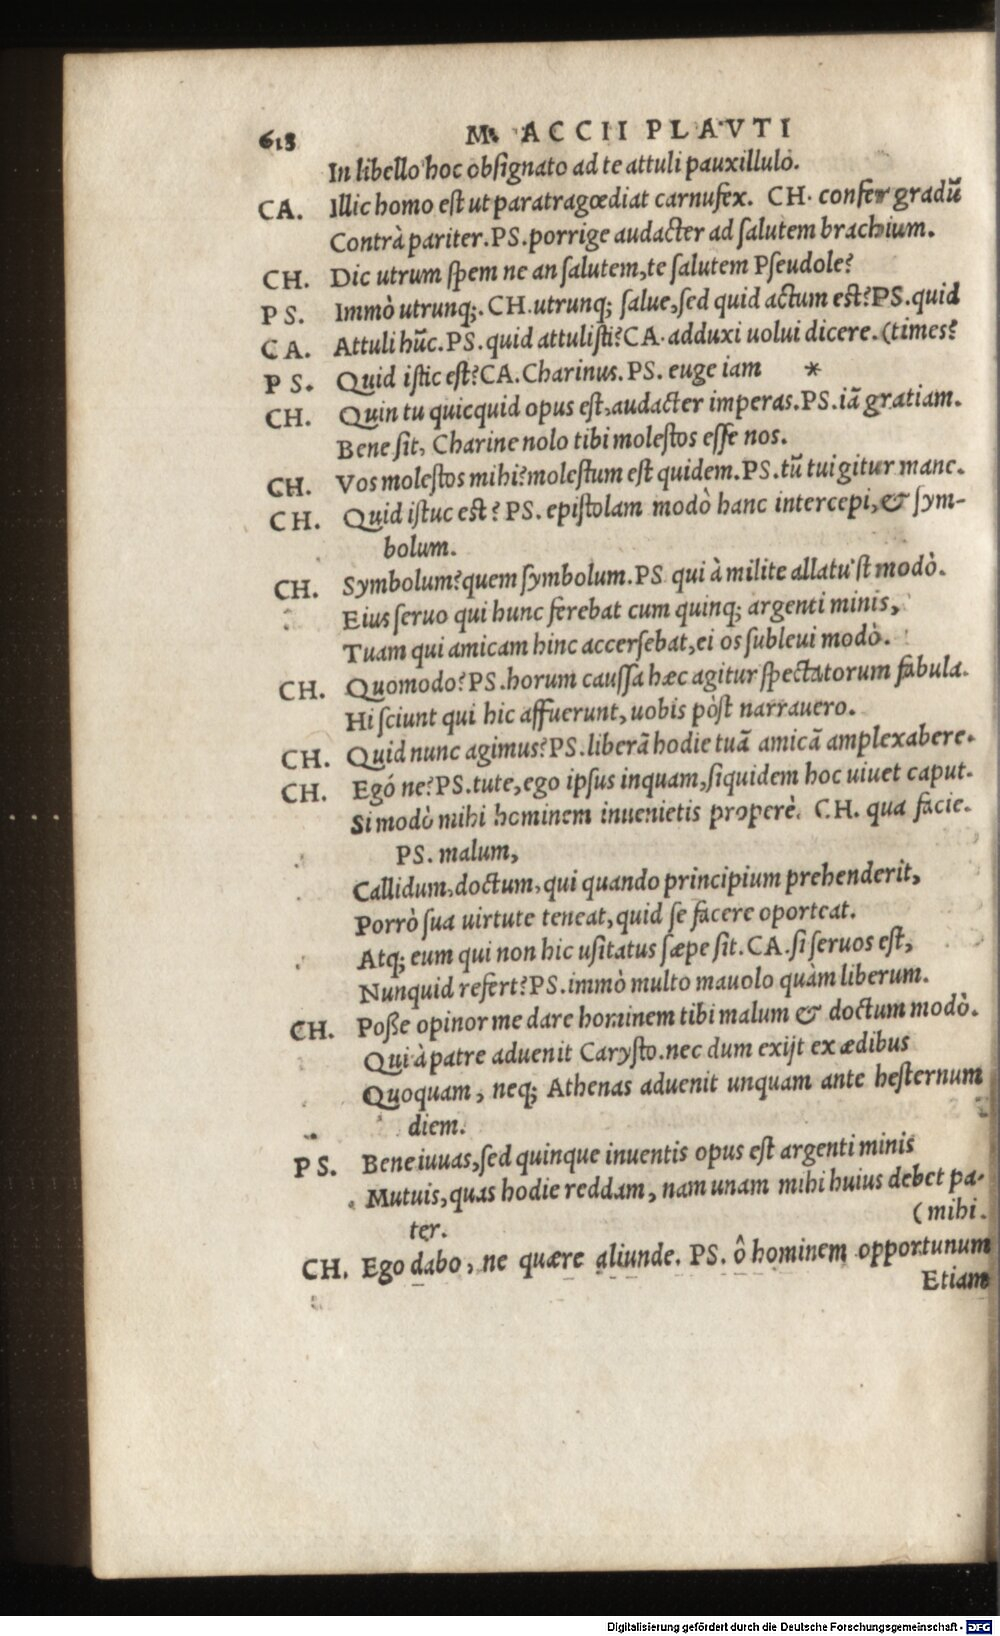 618 M. ACCII PLAVTI
In libello hoc obsignato ad te attuli pauxillulo.
CA. Illic homo est ut paratragœdiat carnufex. CH. confer gradũ
Contrà pariter. PS. porrige audacter ad salutem brachium.
CH. Dic utrum spem ne an salutem, te salutem Pseudole?
PS. Immò utrunq;. CH. utrunq; salue, sed quid actum est? PS. quid
CA. Attuli hũc. PS. quid attulisti? CA. adduxi uolui dicere. (times?
PS. Quid istic est? CA. Charinus. PS. euge iam *
CH. Quin tu quicquid opus est, audacter imperas. PS. iã gratiam.
Bene sit, Charine nolo tibi molestos esse nos.
CH. Vos molestos mihi? molestum est quidem. PS. tũ tuigitur mane.
CH. Quid istuc est? PS. epistolam modò hanc intercepi, & sym-
bolum.
CH. Symbolum? quem symbolum. PS qui à milite allatu'st modò.
Eius seruo qui hunc ferebat cum quinq; argenti minis,
Tuam qui amicam hinc accersebat, ei os subleui modò.
CH. Quomodo? PS. horum caussa hæc agitur spectatorum fabula.
Hi sciunt qui hic affuerunt, uobis pòst narrauero.
CH. Quid nunc agimus? PS. liberã hodie tuã amicã amplexabere.
CH. Egó ne? PS. tute, ego ipsus inquam, siquidem hoc uiuet caput.
Si modò mihi hominem inuenietis properè. CH. qua facie.
PS. malum,
Callidum, doctum, qui quando principium prehenderit,
Porrò sua uirtute teneat, quid se facere oporteat.
Atq; eum qui non hic usitatus sæpe sit. CA. si seruos est,
Nunquid refert? PS. immò multo mauolo quàm liberum.
CH. Posse opinor me dare hominem tibi malum & doctum modò.
Qui à patre aduenit Carysto. nec dum exijt ex ædibus
Quoquam, neq; Athenas aduenit unquam ante hesternum
diem.
PS. Bene iuuas, sed quinque inuentis opus est argenti minis
Mutuis, quas hodie reddam, nam unam mihi huius debet pa-
ter. (mihi.
CH. Ego dabo, ne quære aliunde. PS. ô hominem opportunum
Etiam
Digitalisierung gefördert durch die Deutsche Forschungsgemeinschaft - DFG